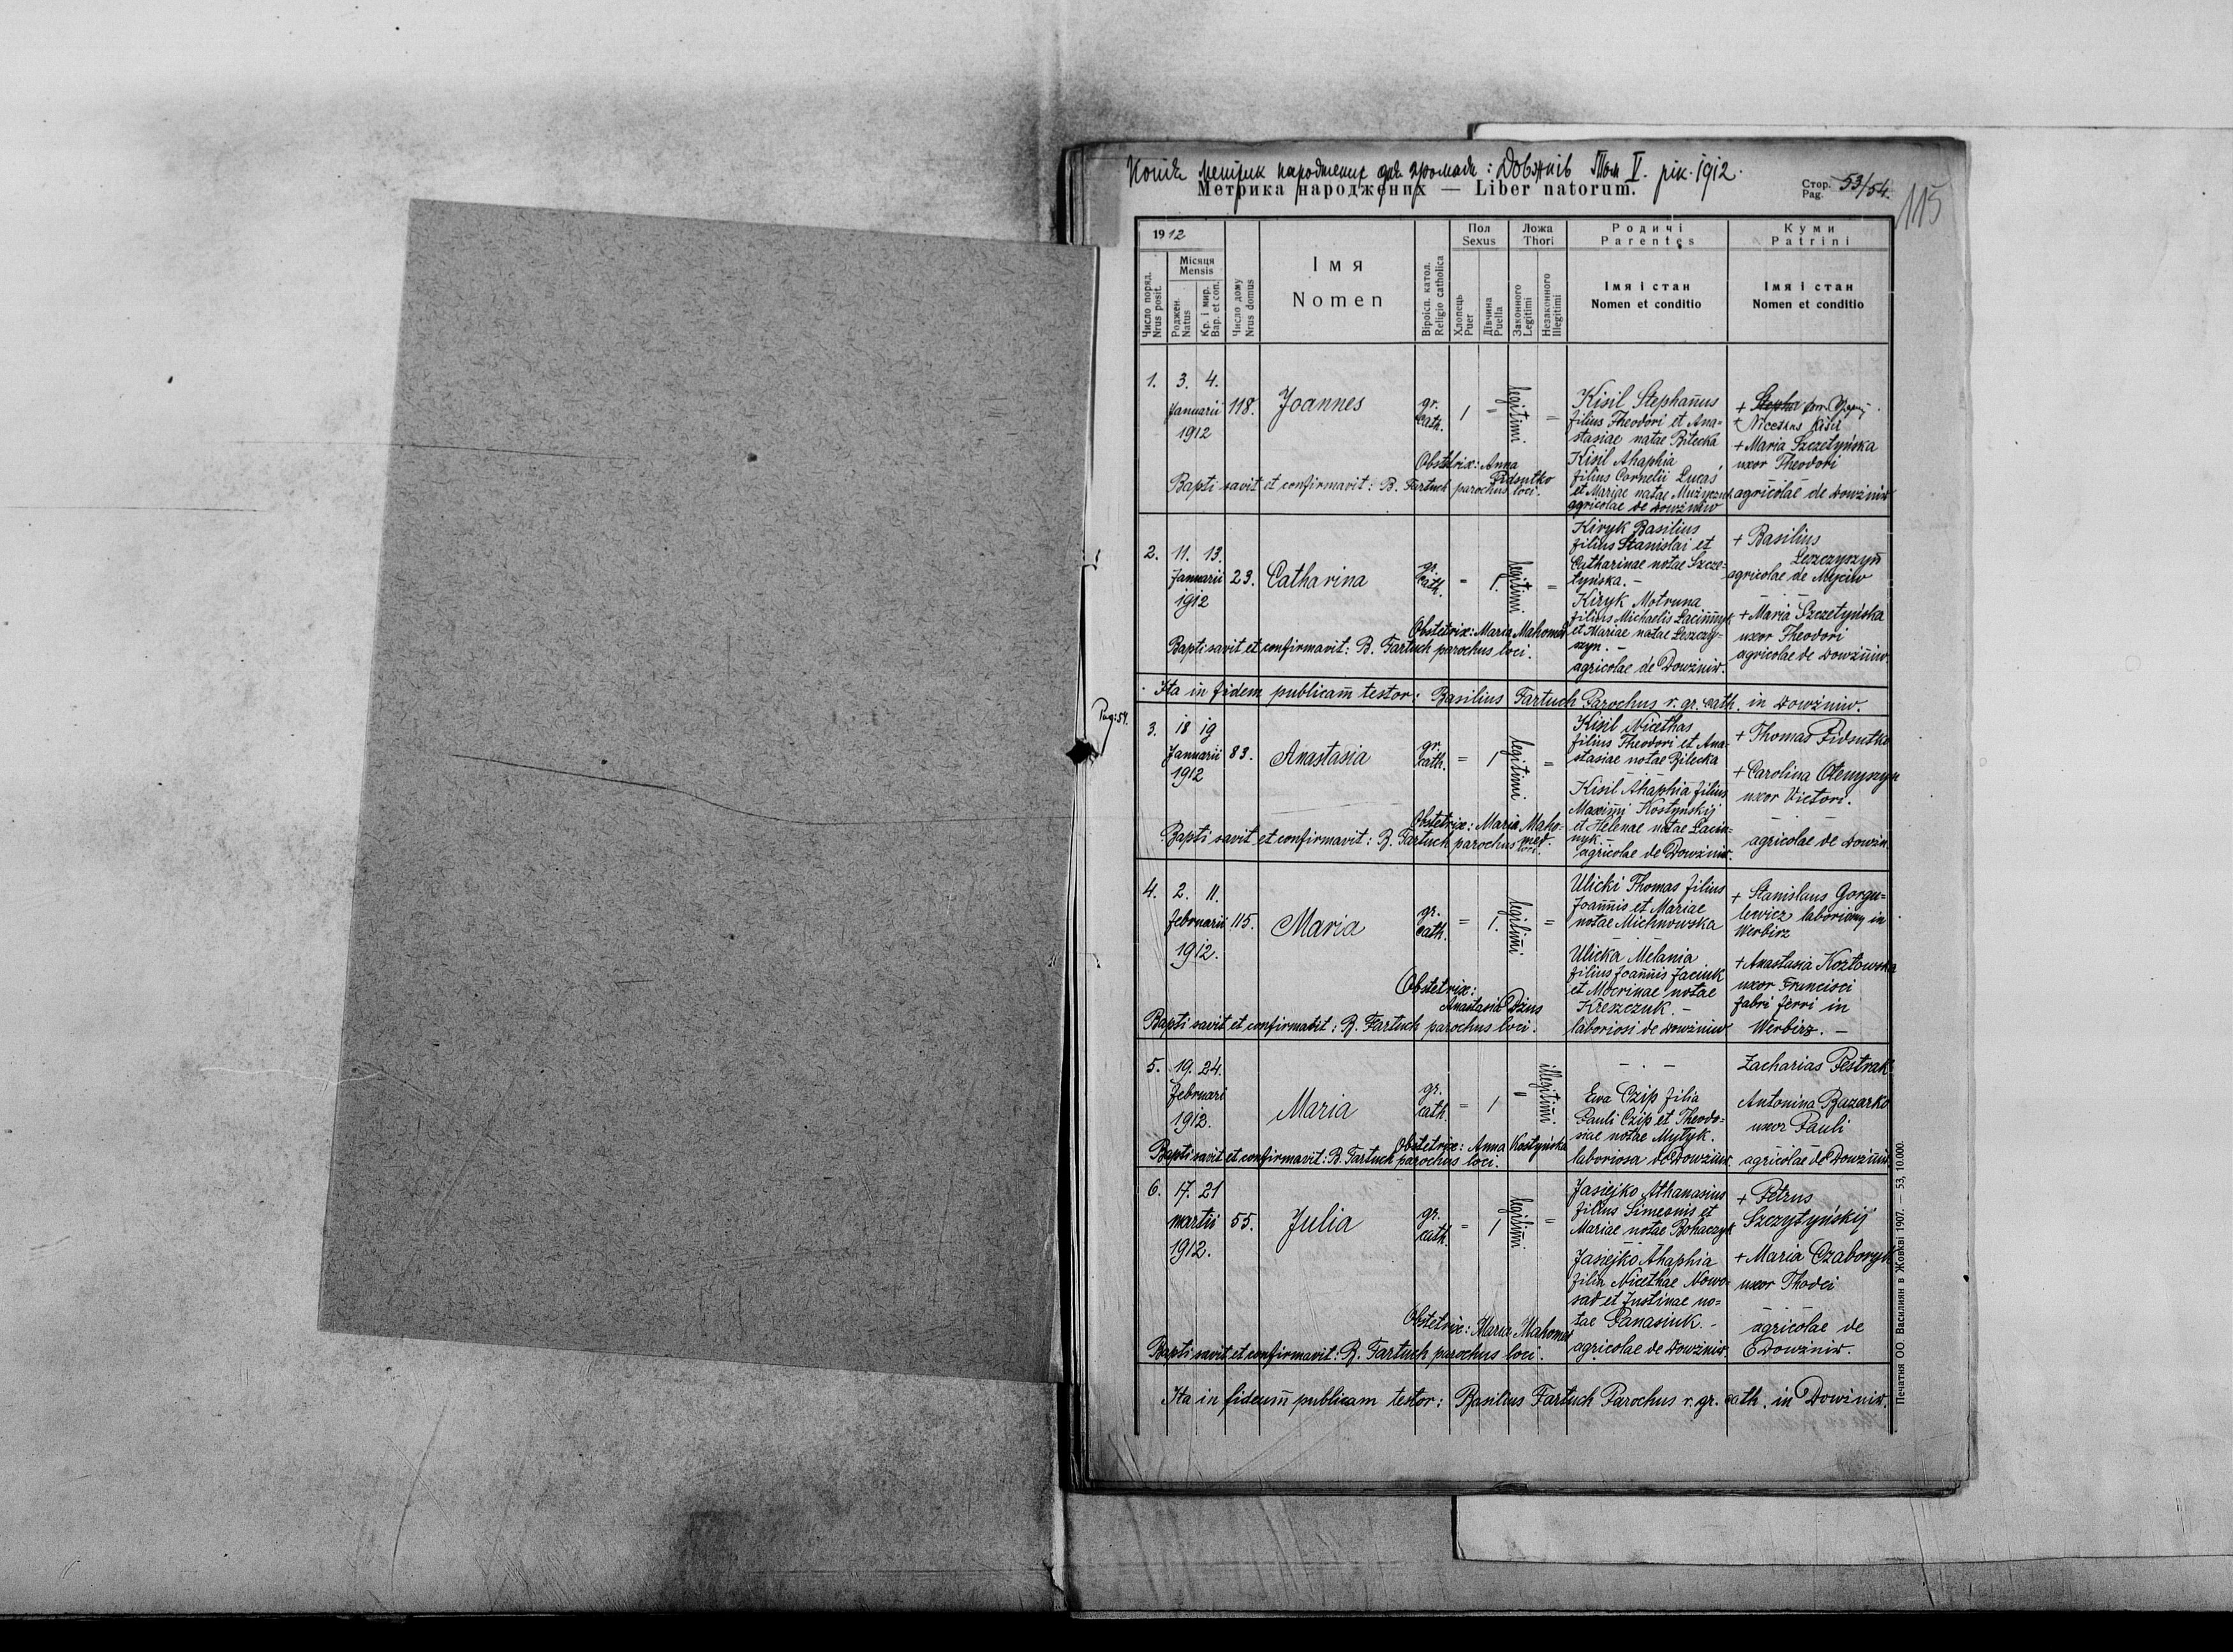 Копія метрик народжених для громади: Довжнів Том V. рік 1912.
Метрика народжених — Liber natorum.
Стор. Pag. 53/54.
115
1912
Число поряд. Nrus posit.
Місяця Mensis
Роджен. Natus
Кр. і мир. Bap. et con.
Число дому Nrus domus
Імя Nomen
Віроісп. катол. Religio catholica
Пол Sexus
Хлопець Puer
Дівчина Puella
Ложа Thori
Законного Legitimi
Незаконного Illegitimi
Родичі Parentes
Імя і стан Nomen et conditio
Куми Patrini
Імя і стан Nomen et conditio
1. 3. 4. Januarii 1912 118. Joannes gr. cath. 1 = legitimi =
Kisil Stephanus
filius Theodori et Ana=
stasiae natae Bilecka
Kisil Ahaphia
filius Cornelii Lucas
et Mariae natae Muzyczuk
agricolae de Dowżniw
+ Nicethas Kisil
+ Maria Szczetyńska
uxor Theodori
agricolae de Dowżniw
Obstetrix: Anna Pidsutko
Baptisavit et confirmavit: B. Fartuch parochus loci.
2. 11. 13. Januarii 1912 23. Catharina gr. cath. = 1. legitimi =
Kiryk Basilius
filius Stanislai et
Catharinae natae Szcze=
tyńska. -
Kiryk Motruna
filius Michaelis Lacinnyk
et Mariae natae Leszczy=
szyn. -
agricolae de Dowżniw.
+ Basilius
Leszczyszyn
agricolae de Myciw
+ Maria Szczetyńska
uxor Theodori
agricolae de Dowżniw
Obstetrix: Maria Mahomed
Baptisavit et confirmavit: B. Fartuch parochus loci.
Ita in fidem publicam testor: Basilius Fartuch Parochus r. gr. cath. in Dowżniw.
Pag: 54.
3. 18 19 Januarii 1912 83. Anastasia gr. cath. = 1 legitimi =
Kisil Nicethas
filius Theodori et Ana=
stasiae natae Bilecka
Kisil Ahaphia filius
Maximi Kostynskij
et Helenae natae Lacin=
nyk. -
agricolae de Dowżniw.
+ Thomas Pidsutko
+ Carolina Olenyszyn
uxor Victori.
agricolae de Dowżn.
Obstetrix: Maria Maho=
med.
Baptisavit et confirmavit: B. Fartuch parochus loci.
4. 2. 11. Februarii 1912. 115. Maria gr. cath. = 1. legitimi =
Ulicki Thomas filius
Joannis et Mariae
natae Michnowska
Ulicka Melania
filius Joannis Jaciuk
et Mocrinae natae
Kreszczuk. -
laboriosi de Dowżniw
+ Stanislaus Gorgu=
lewicz laboriany in
Werbirz
+ Anastasia Kozłowska
uxor Francisci
fabri ferri in
Werbirz. -
Obstetrix:
Anastasia Dzius
Baptisavit et confirmavit: B. Fartuch parochus loci.
5. 19. 24. Februari 1912. Maria gr. cath. = 1 " illegitimi
- . -
Ewa Czip filia
Pauli Czip et Theodo=
siae natae Mytyk.
laboriosa de Dowżniw.
Zacharias Pestrak
Antonina Bazarko
uxor Pauli
agricolae de Dowżniw.
Obstetrix: Anna Kostyńska
Baptisavit et confirmavit: B. Fartuch parochus loci.
6. 17. 21 martii 1912. 55. Julia gr. cath. = 1 legitimi =
Jasiejko Athanasius
filius Simeonis et
Mariae natae Bohaczyk
Jasiejko Ahaphia
filia Nicethae Nowo=
sad et Justinae na=
tae Panasiuk. -
agricolae de Dowżniw
+ Petrus
Szczytyńskij
+ Maria Czaboryk
uxor Thadei
agricolae de
Dowżniw.
Obstetrix: Maria Mahomed
Baptisavit et confirmavit: B. Fartuch parochus loci.
Ita in fideum publicam testor: Basilius Fartuch Parochus r. gr. cath. in Dowżniw.
Печатня ОО Василиян в Жовкві 1907. — 53, 10.000.